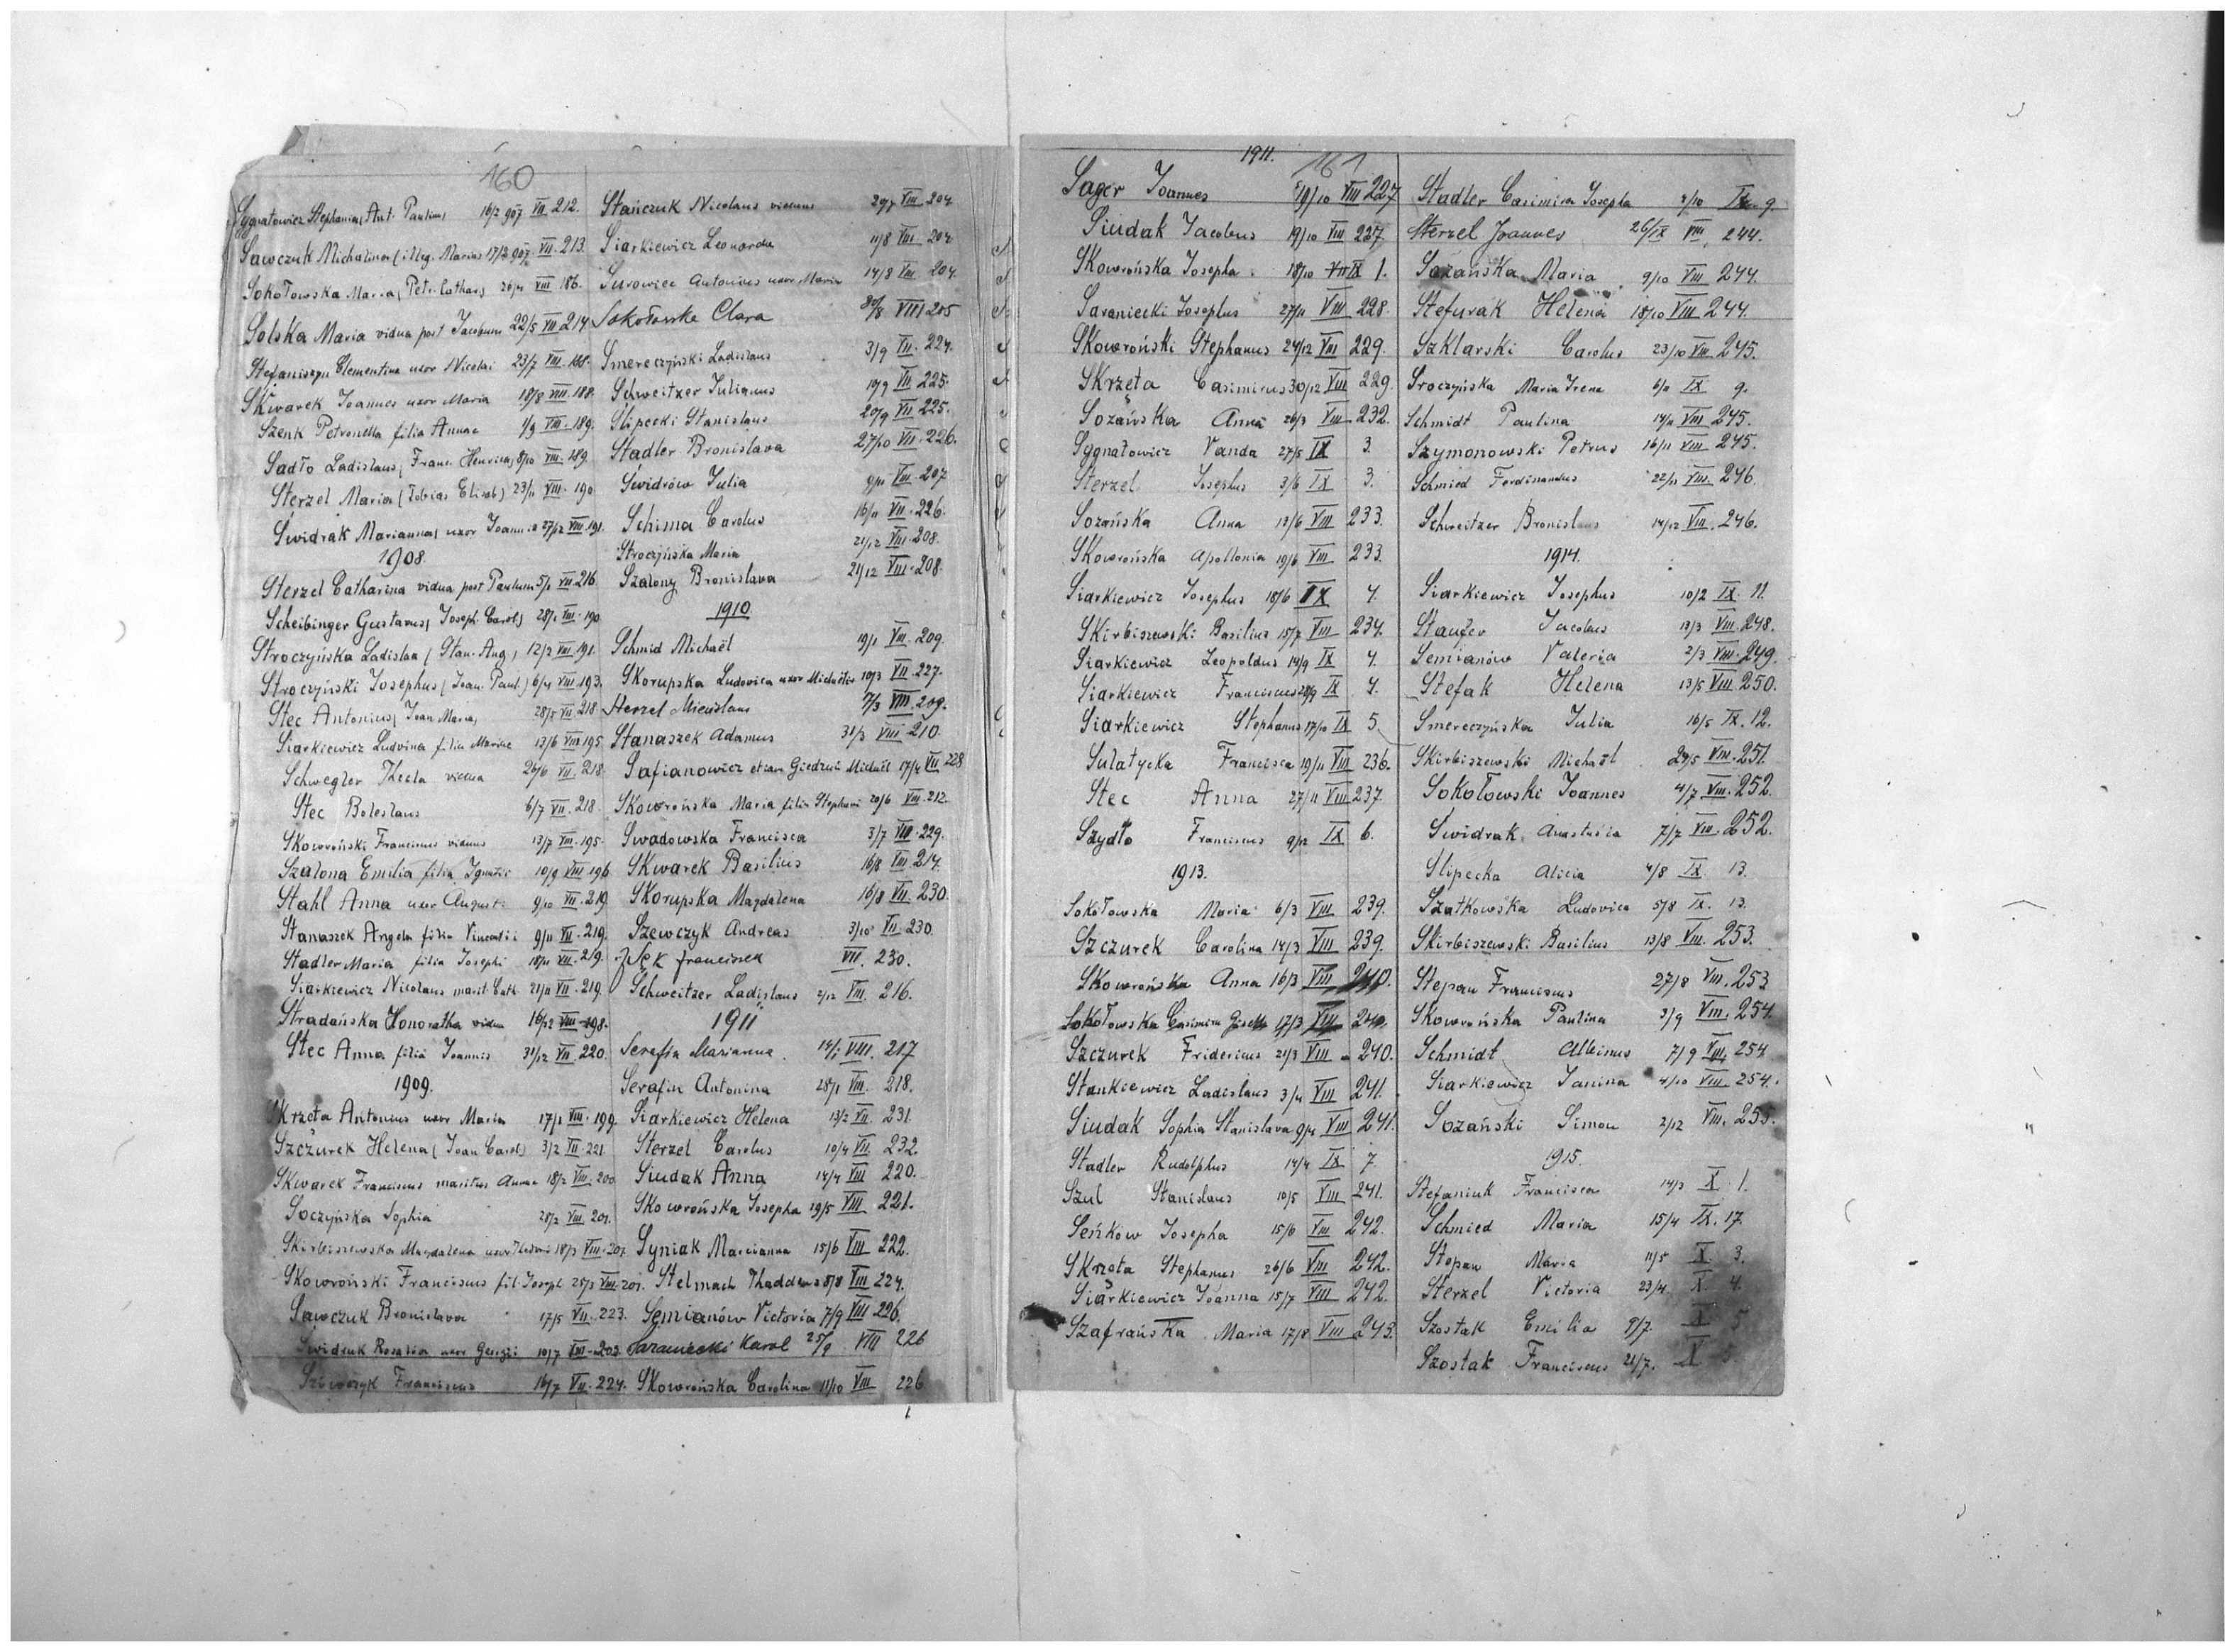 160
Sygnatowicz Stephania, Ant. Paulina 16/2 907 VII. 212.
Sawczuk Michalina (illeg. Mariae 17/2 907 VII. 213.
Sokołowska Maria, Petr. Cathar, 20/4 VIII 186.
Solska Maria vidua post Jacobum 22/5 VII 214
Stefaniszyn Clementina uxor Nicolai 23/7 VIII. 188.
Skwarek Joannes uxor Maria 18/8 VIII. 188.
Szenk Petronella filia Annae 1/9 VIII. 189.
Sadło Ladislaus, Franc. Henrica, 8/10 VIII. 189
Sterzel Maria (Tobias Elisab) 23/11 VIII. 190
Świdrak Marianna, uxor Joannis 27/12 VIII. 191.
1908.
Sterzel Catharina vidua post Paulum 5/1 VII 216.
Scheibinger Gustavus, Joseph. Carol, 28/1 VIII. 190
Stroczyńska Ladislaa (Stan. Aug, 12/2 VIII 191.
Stroczyński Josephus (Joan. Paul.) 6/4 VIII 193.
Stec Antonius, Joan Maria, 28/5 VII 218
Siarkiewicz Ludvina filia Mariae 13/6 VIII 195
Schwegler Thecla vidua 26/6 VII. 218
Stec Boleslaus 6/7 VII. 218.
Skowroński Franciscus viduus 13/7 VIII. 195.
Szalona Emilia filia Ignatii 10/9 VIII 196
Stahl Anna uxor Augusti 9/10 VII. 219
Stanaszek Angela filia Vincentii 9/11 VII. 219.
Stadler Maria filia Josephi 18/11 VII. 219.
Siarkiewicz Nicolaus marit. Cath. 21/11 VII. 219.
Stradańska Honoratha vidua 16/12 VIII 198.
Stec Anna filia Joannis 31/12 VII. 220.
1909.
Skrzeta Antonius uxor Maria 17/1 VIII. 199
Szczurek Helena (Joan Carol) 3/2 VII. 221
Skwarek Franciscus maritus Annae 18/2 VIII. 200
Soczyńska Sophia 28/2 VIII 201.
Skirbiszewska Magdalena 18/3 VIII. 201
Skowroński Franciscus fil. Joseph. 25/3 VIII. 201.
Sawczuk Bronislava 17/5 VII. 223.
Świdruk Rosalia uxor Georgii 10/7 VIII. 202
Szewczyk Franciscus 16/7 VII. 224.
Stańczuk Nicolaus viduus 29/7 VIII. 204
Siarkiewicz Leonarda 11/8 VIII. 204
Surowiec Antonius uxor Maria 14/8 VIII. 204.
Sokołowska Clara 30/8 VIII 205
Smereczyński Ladislaus 3/9 VII. 224.
Schweitzer Julianus 10/9 VII 225.
Slipecki Stanislaus 20/9 VII. 225.
Stadler Bronislava 27/10 VII. 226.
Świdrów Julia 9/11 VIII. 207
Schima Carolus 16/11 VII. 226.
Stroczyńska Maria 21/12 VIII. 208.
Szalony Bronislava 21/12 VIII. 208
1910
Schmid Michaël 19/1 VIII. 209.
Skorupska Ludovica uxor Michaëlis 10/3 VII. 227.
Sterzel Miecislaus 7/3 VIII. 209.
Stanaszek Adamus 31/3 VIII 210.
Safianowicz Michaël 17/4 VII 228
Skowrońska Maria filia Stephani 20/6 VIII. 212.
Swadowska Francisca 3/7 VII. 229.
Skwarek Basilius 16/8 VIII 214.
Skorupska Magdalena 16/8 VII. 230.
Szewczyk Andreas 3/10 VII. 230.
VII. 230.
Schweitzer Ladislaus 2/12 VIII. 216.
1911
Serafin Marianna 14/1 VIII. 217
Serafin Antonina 28/1 VIII. 218.
Siarkiewicz Helena 13/2 VII. 231.
Sterzel Carolus 10/4 VII. 232.
Siudak Anna 14/4 VIII 220.
Skowrońska Josepha 19/5 VIII 221.
Syniak Marcianna 15/6 VIII 222.
Stelmach Thaddeus 8/8 VIII 224.
Semianów Victoria 7/9 VIII 226.
Saraniecki Karol 25/9 VIII 226
Skowrońska Carolina 11/10 VIII 226
1911.
161
Sager Joannes 19/10 VIII 227
Siudak Jacobus 19/10 VIII 227.
Skowrońska Josepha 18/10 IX 1.
Saraniecki Josephus 27/11 VIII 228.
Skowroński Stephanus 24/12 VIII 229.
Skrzęta Casimirus 30/12 VIII 229.
Sozańska Anna 26/3 VIII 232.
Sygnatowicz Vanda 27/5 IX 3.
Sterzel Josephus 3/6 IX 3.
Sozańska Anna 13/6 VIII 233.
Skowrońska Apollonia 19/6 VIII 233.
Siarkiewicz Josephus 18/6 IX 4.
Skirbiszewski Basilius 15/7 VIII 234.
Siarkiewicz Leopoldus 14/9 IX 4.
Siarkiewicz Franciscus 28/9 IX 4.
Siarkiewicz Stephanus 17/10 IX 5.
Sulatycka Francisca 19/11 VIII 236.
Stec Anna 27/11 VIII 237.
Szydło Franciscus 9/12 IX 6.
1913.
Sokołowska Maria 6/3 VIII 239.
Szczurek Carolina 14/3 VIII 239.
Skowrońska Anna 16/3 VIII 240.
Sokołowska Casimira Gisella 17/3 VIII 240.
Szczurek Fridericus 21/3 VIII 240.
Stankiewicz Ladislaus 3/4 VIII 241.
Siudak Sophia Stanislava 9/4 VIII 241.
Stadler Rudolphus 14/4 IX 7
Szul Stanislaus 10/5 VIII 241.
Seńków Josepha 15/6 VIII 242.
Skrzeta Stephanus 26/6 VIII 242.
Siarkiewicz Joanna 15/7 VIII 242.
Szafrańska Maria 17/8 VIII 243.
Stadler Casimira Josepha 2/10 IX 9.
Sterzel Joannes 26/IX VIII, 244.
Sozańska Maria 9/10 VIII 244.
Stefurak Helena 18/10 VIII 244.
Szklarski Carolus 23/10 VIII 245.
Sroczyńska Maria Irena 6/11 IX 9.
Schmidt Paulina 14/11 VIII 245.
Szymonowski Petrus 16/11 VIII 245.
Schmied Ferdinandus 22/11 VIII. 246.
Schweitzer Bronislaus 14/12 VIII. 246.
1914.
Siarkiewicz Josephus 10/2 IX. 11.
Staufer Jacobus 13/3 VIII. 248.
Semianów Valeria 2/3 VIII. 249.
Stefak Helena 13/5 VIII 250.
Smereczyńska Julia 16/5 IX. 12.
Skirbiszewski Michaël 29/5 VIII. 251.
Sokołowski Joannes 4/7 VIII. 252.
Świdrak Anastasia 7/7 VIII. 252.
Slipecka Alicia 4/8 IX. 13.
Szatkowska Ludovica 5/8 IX. 13.
Skirbiszewski Basilius 13/8 VIII. 253.
Stepan Franciscus 27/8 VIII. 253
Skowrońska Paulina 3/9 VIII. 254
Schmidt Albinus 7/9 VIII. 254
Siarkiewicz Janina 4/10 VIII 254.
Sozański Simon 2/12 VIII. 255.
1915.
Stefaniuk Francisca 14/3 X 1.
Schmied Maria 15/4 IX. 17.
Stopan Maria 11/5 X 3.
Sterzel Victoria 23/4. X. 4.
Szostak Emilia 9/7. X 5
Szostak Franciscus 21/7. X 5